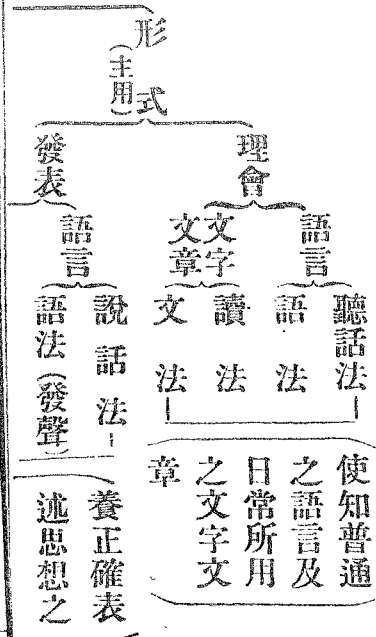 形式
(主用)
理會
語言
聽話法
語法
文字
文章
讀法
文法
使知普通
之語言及
日常所用
之文字文
章
發表
語言
說話法
語法(發聲)
養正確表
述思想之